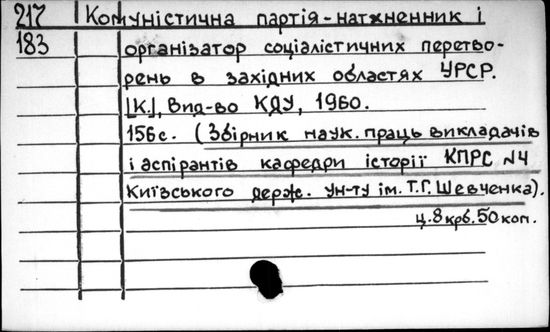 217 Комуністична партія-натхненник і
183 організатор соціалістичних перетво-
рень в західних областях УРСР.
[К.], Вид-во КДУ, 1960.
156с. (Збірник наук. праць викладачів
і аспірантів кафедри історії КПРС №4
Київського держ. ун-ту ім. Т.Г. Шевченка).
ц. 8 крб. 50 коп.